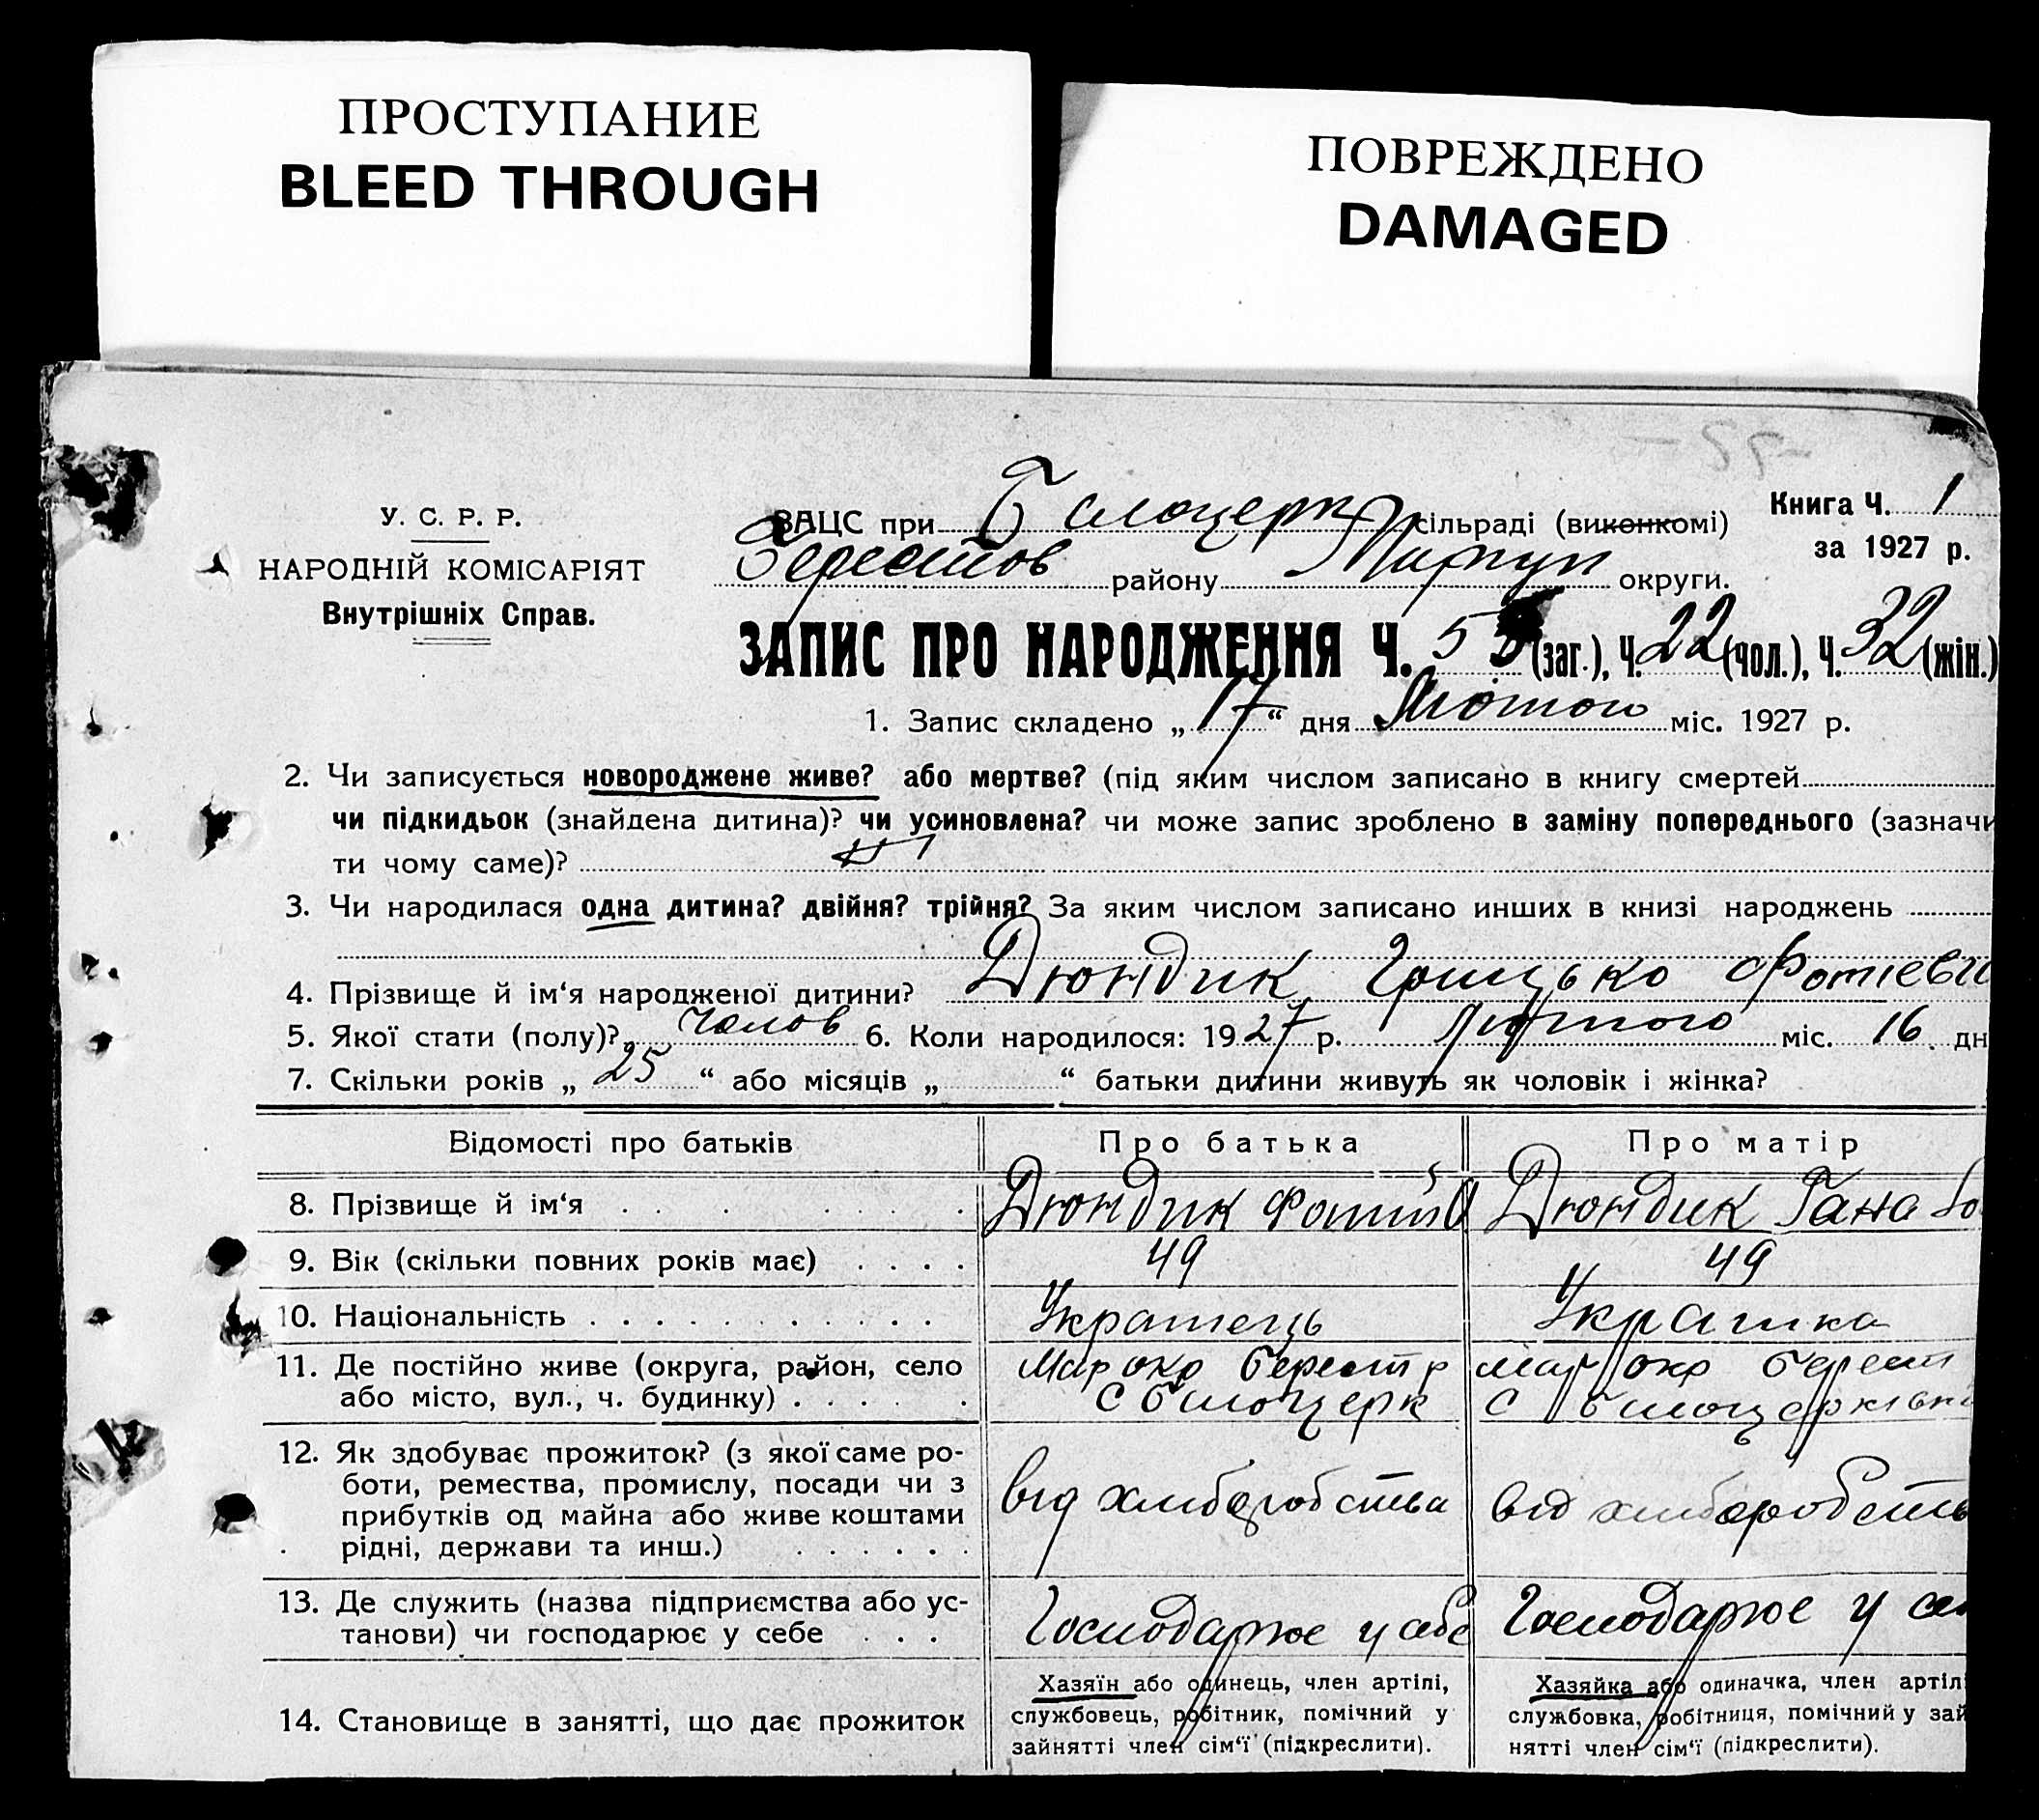 ПРОСТУПАНИЕ
BLEED THROUGH
ПОВРЕЖДЕНО
DAMAGED
У. С. Р. Р.
НАРОДНІЙ КОМІСАРІЯТ
Внутрішніх Справ.
ЗАЦС при Білоцерк сільраді (виконкомі)
Берестов району Маріуп округи.
Книга Ч. 1
за 1927 р.
ЗАПИС ПРО НАРОДЖЕННЯ Ч. 5 (заг.), Ч. 22 (чол.), Ч. 32 (жін.)
1. Запис складено „17“ дня Лютого міс. 1927 р.
2. Чи записується новороджене живе? або мертве? (під яким числом записано в книгу смертей
чи підкидьок (знайдена дитина)? чи усиновлена? чи може запис зроблено в заміну попереднього (зазначи
ти чому саме)?
3. Чи народилася одна дитина? двійня? трійня? За яким числом записано инших в книзі народжень
4. Прізвище й ім‘я народженої дитини? Дюндик Грицько Фотієви
5. Якої стати (полу)? чолов 6. Коли народилося: 1927 р. Лютого міс. 16 дн
7. Скільки років „25“ або місяців „ “ батьки дитини живуть як чоловік і жінка?
Відомості про батьків Про батька Про матір
8. Прізвище й ім‘я Дюндик Фотій Дюндик Гана
9. Вік (скільки повних років має) 49 49
10. Національність Украінець Украінка
11. Де постійно живе (округа, район, село Мар окр Берест р Мар окр Берест
або місто, вул., ч. будинку) с Білоцерк с Білоцерківка
12. Як здобуває прожиток? (з якої саме ро-
боти, ремества, промислу, посади чи з від хліборобства від хлібаробств
прибутків од майна або живе коштами
рідні, держави та инш.)
13. Де служить (назва підприємства або ус-
танови) чи господарює у себе Господарює у себе Господарює у
14. Становище в занятті, що дає прожиток
Хазяїн або одинець, член артілі,
службовець, робітник, помічний у
зайнятті член сім‘ї (підкреслити).
Хазяйка або одиначка, член артіл
службовка, робітниця, помічний у зай
нятті член сім‘ї (підкреслити).